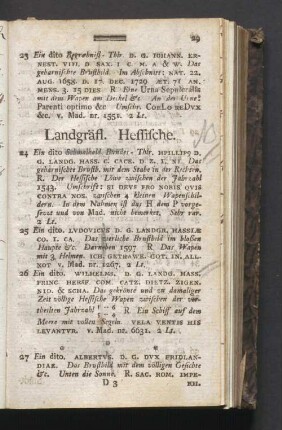 29
23 Ein dito Begräbniß-Thlr. D. G. IOHANN. ER-
NEST. VIII. D SAX. I C M. A & W. Das
geharnischte Brustbild. Im Abschnitt: NAT. 22.
AUG. 1658. D. 17. DEC. 1729 ÆT: 71 AN.
MENS. 3. 15 DIES R Eine Urna Sepulcralis
mit dem Wapen am Deckel &c. An der Urne:
Parenti optimo &c Umschr. CONLO DE DVX
&c. v. Mad. nr. 1551. 2 Lt.
Landgräfl. Hessische.
24 Ein dito Schmalkald. Bundes-Thlr. HPILLIPP D.
G. LANDG. HASS. C. CACK. D Z. E. NI. Das
geharnischte Brustb. mit dem Stabe in der Rechten.
R. Der Hessische Löwe zwischen der Jahrzahl
1543. Umschrift: SI DEVS PRO NOBIS QVIS
CONTRA NOS. zwischen 4 kleinen Wapenschil-
dern. In dem Nahmen ist das H dem P vorge-
setzt und von Mad. nicht bemerket. Sehr rar.
2 Lt.
25 Ein dito. LVDOVICUS D. G. LANDGR. HASSIÆ
CO. I. CA. Das zierliche Brustbild im bloßen
Haupte &c. Darneben 1597 R Das Wapen
mit 3. Helmen. ICH. GETHAWE. GOT. IN. ALL-
NOT v. Mad. nr. 1267. 2 Lt.
26 Ein dito. WILHELMS. D. G. LANDG. HASS.
FRINC. HERSF. COM. CATZ. DIETZ. ZIGEN.
NID. & SCHA. Das gekrönte und zu damaliger
Zeit völlige Hessische Wapen zwischen der ver-
theilten Jahrzahl R Ein Schiff auf dem
Meere mit vollen Segeln. VELA VENTIS HIS
LEVANTVR. v. Mad. nr. 6631. 2 Lt.
27 Ein dito. ALBERTVS. D. G. DVX FRIDLAN-
DIAE. Das Brustbild mit dem völligen Gesichte
&c. Unten die Sonne. R. SAC. ROM. IMPE-
D 3
RII.